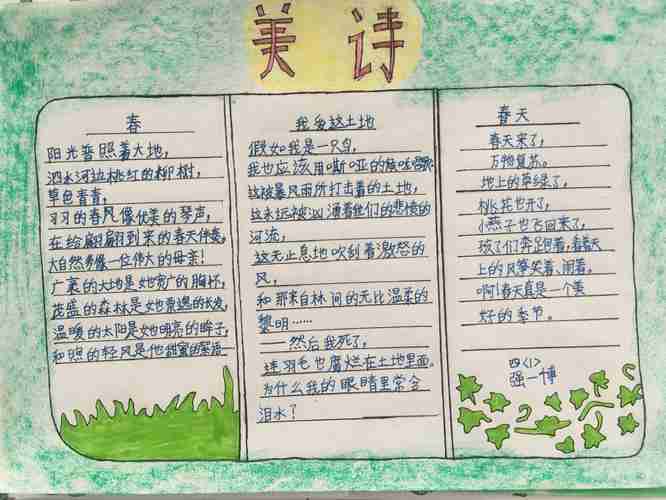 美诗
春
阳光普照着大地，
泗水河边桃红的柳树，
草色青青，
习习的春风像优美的琴声，
在给翩翩到来的春天伴奏，
大自然多像一位伟大的母亲！
广袤的大地是她宽广的胸怀，
茂盛的森林是她飘逸的长发，
温暖的太阳是她明亮的眸子，
和煦的轻风是他甜蜜的絮语
我爱这土地
假如我是一只鸟，
我也应该用嘶哑的喉咙歌唱
这被暴风雨所打击着的土地，
这永远被汹涌着我们的悲愤的
河流，
这无止息地吹刮着激怒的
风，
和那来自林间的无比温柔的
黎明……
——然后我死了，
连羽毛也腐烂在土地里面。
为什么我的眼睛里常含
泪水？
春天
春天来了，
万物复苏。
地上的草绿了，
桃花也开了，
小燕子也飞回来了，
孩子们奔跑着，看着天
上的风筝笑着、闹着。
啊！春天真是一个美
好的季节。
四〈1〉
强一博